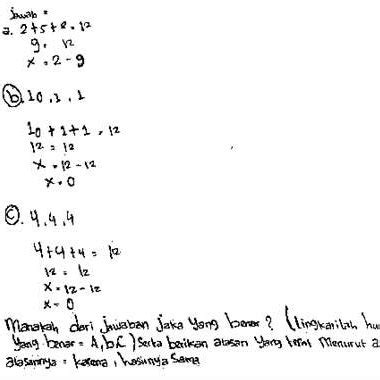 Jawab =
a. 2+5+2 = 12
9 = 12
x = 2 - 9
b. 10, 1, 1
10 + 1 + 1 = 12
12 = 12
x = 12 - 12
x = 0
c. 4, 4, 4
4+4+4 = 12
12 = 12
x = 12 - 12
x = 0
Manakah dari jawaban jaka yang benar? (lingkarilah hu
yang benar = A, b, C) Serta berikan alasan yang Menurut a
alasannya = karena, hasilnya Sama